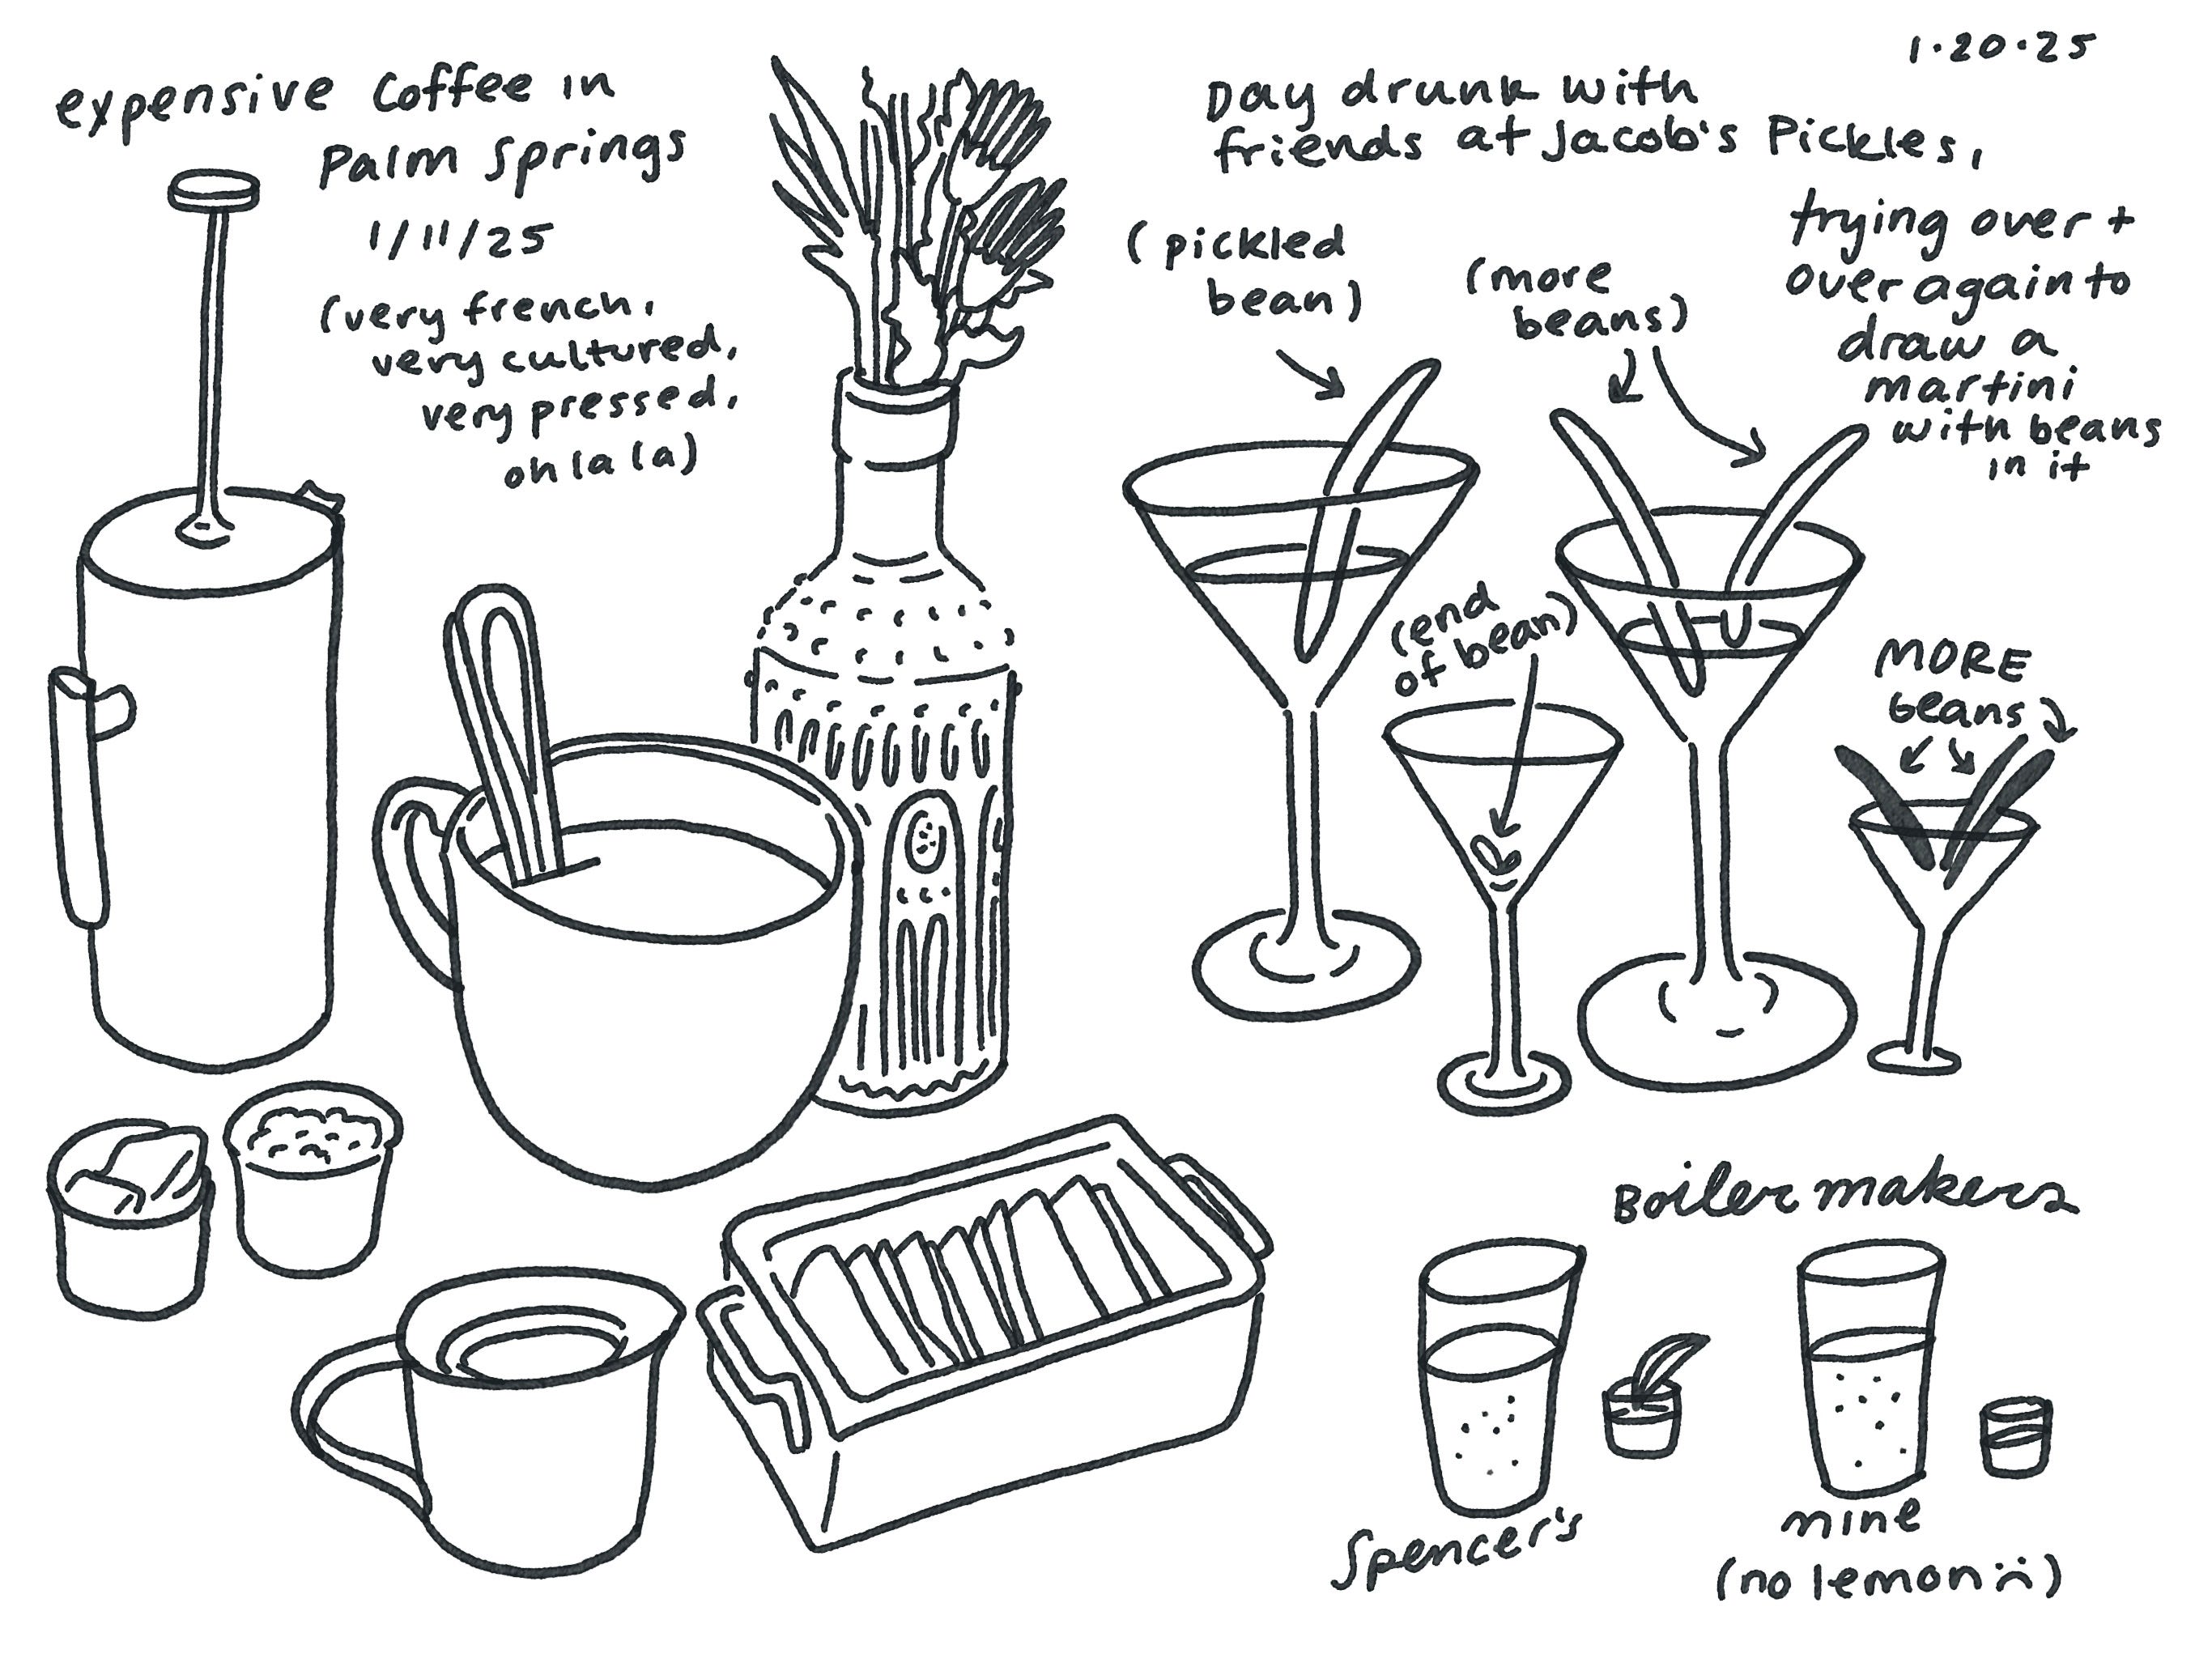 expensive Coffee in
Palm Springs
1/11/25
(very french,
very cultured,
very pressed,
oh la la)
1.20.25
Day drunk with
friends at Jacob's Pickles,
trying over +
over again to
draw a
martini
with beans
in it
(pickled
bean)
(more
beans)
(end
of bean)
MORE
beans
Boilermakers
Spencer's
mine
(no lemon :( )